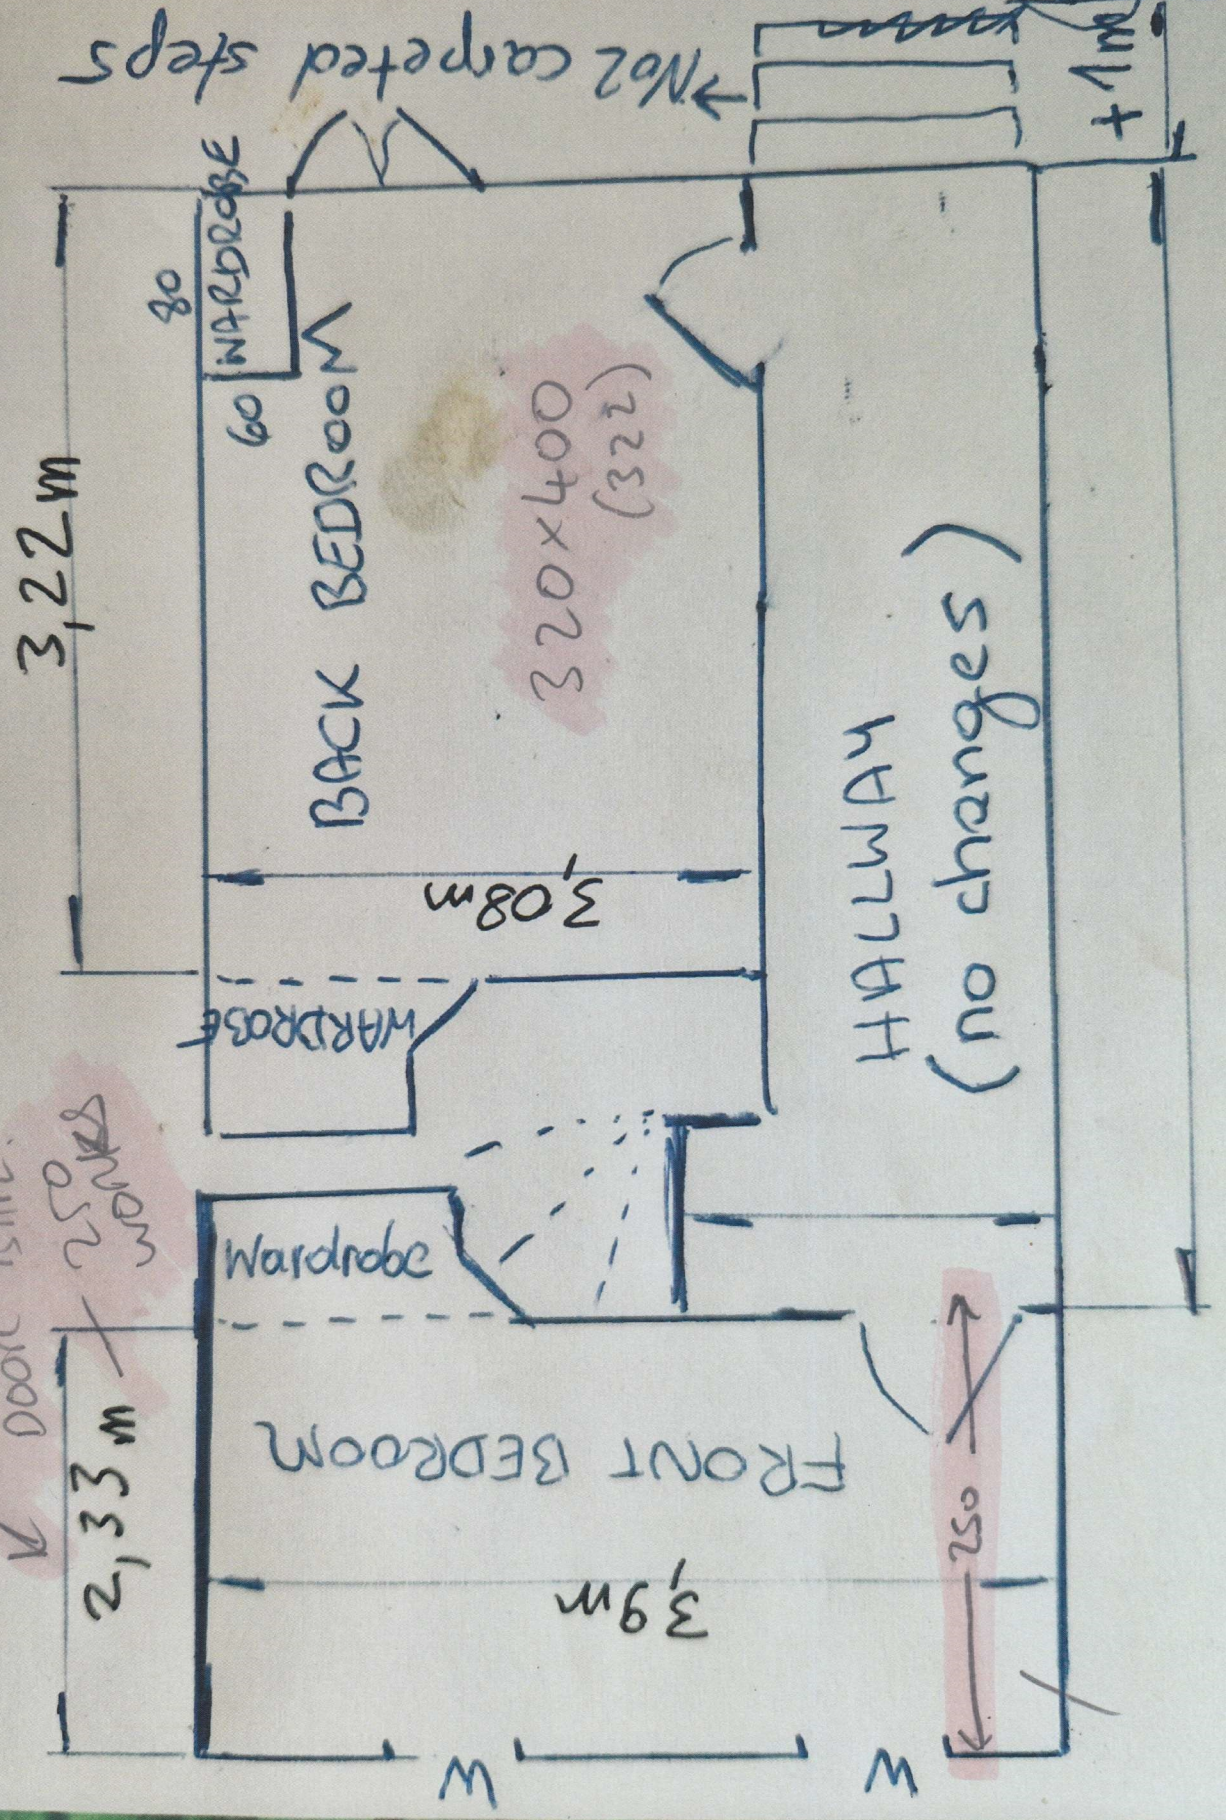 No2 carpeted steps
+1m
WARDROBE
80
60
3,22m
BACK BEDROOM
320x400
(322)
3,08m
WARDROBE
HALLWAY
(no changes)
250
works
Wardrobe
DOOR
2,33 m
FRONT BEDROOM
250
3,9m
W
W